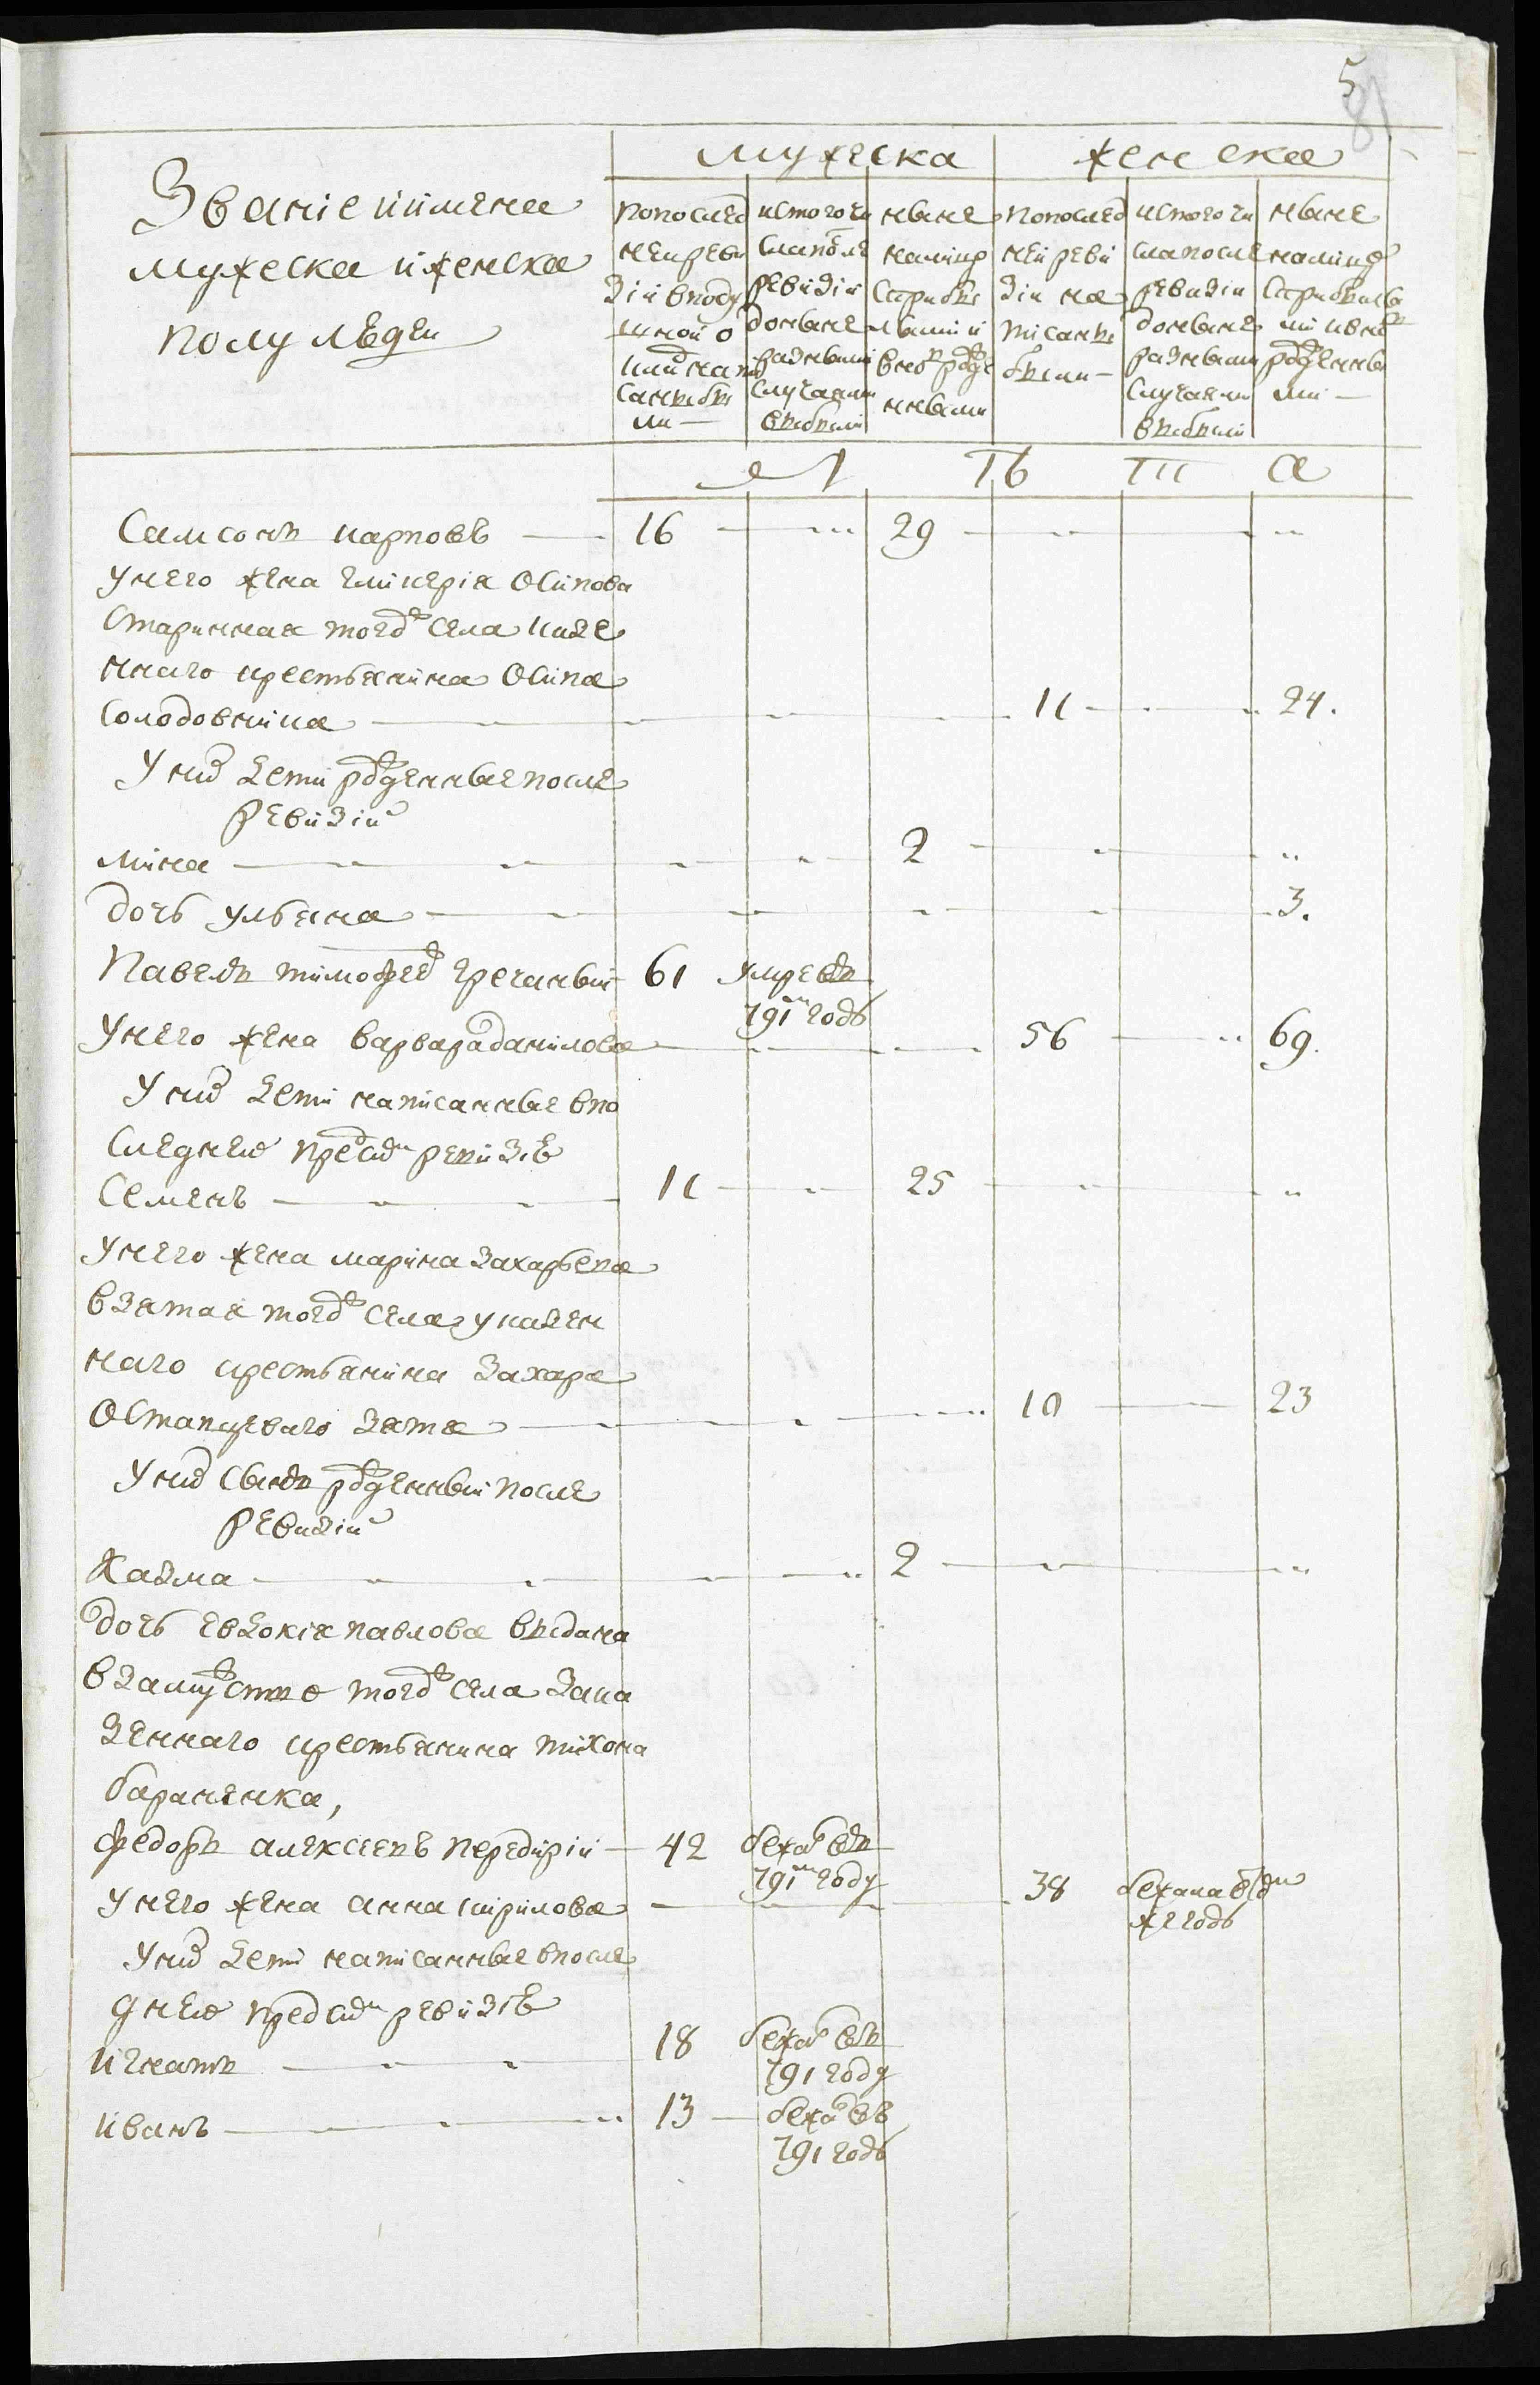 5
81
Званіе иимена
мужеска иженска
полу людеи
мужеска
женска
попослед
неиреви
зіи вподу
шной о
кладъ напи
санны бы
ли —
истого чи
сла после
ревизіи
донынѣ
разными
случаями
выбыли
нынѣ
налицо
Сприбы
лыми и
вновь рожде
нными
попослед
ней реви
зіи на
писаны
были —
истого чи
сла после
ревизіи
донынѣ
разными
случаями
выбыли
нынѣ
налицо
Сприбылы
ми ивно
рожденны
ми —
Л Ѣ Т А
Самсонъ карповъ — 16 — 29 —
унего жена гликерія осипова
старинная тогожъ села казе
ннаго крестьянина осипа
солодовника — 11 — 24.
у них дети рожденные после
ревизіи
мина — 2 —
дочь ульяна — 3.
павелъ тимофеевъ гречаный 61 умре въ
791м годѣ
унего жена варвара данилова — 56 — 69.
у них дети написанные впо
следнею пред сим ревизію
Семенъ — 11 — 25 —
унего жена марина захарьева
взятая тогожъ села у казен
наго крестьянина захара
остапцеваго зятя — 10 — 23
у них сынъ рожденный после
ревизіи
Казма — 2 —
дочь евдокія павлова выдана
взамужство тогожъ села зака
зеннаго крестьянина тихона
бараненка,
федоръ алексеевъ передирій — 42 бежалъ въ
791м году
унего жена анна кирилова — 38 бежала втом
же годѣ
у них дети написанные впосле
днею пред сим ревизію
игнатъ — 18 бежалъ въ
791 году
иванъ — 13 — бежалъ въ
791 годѣ